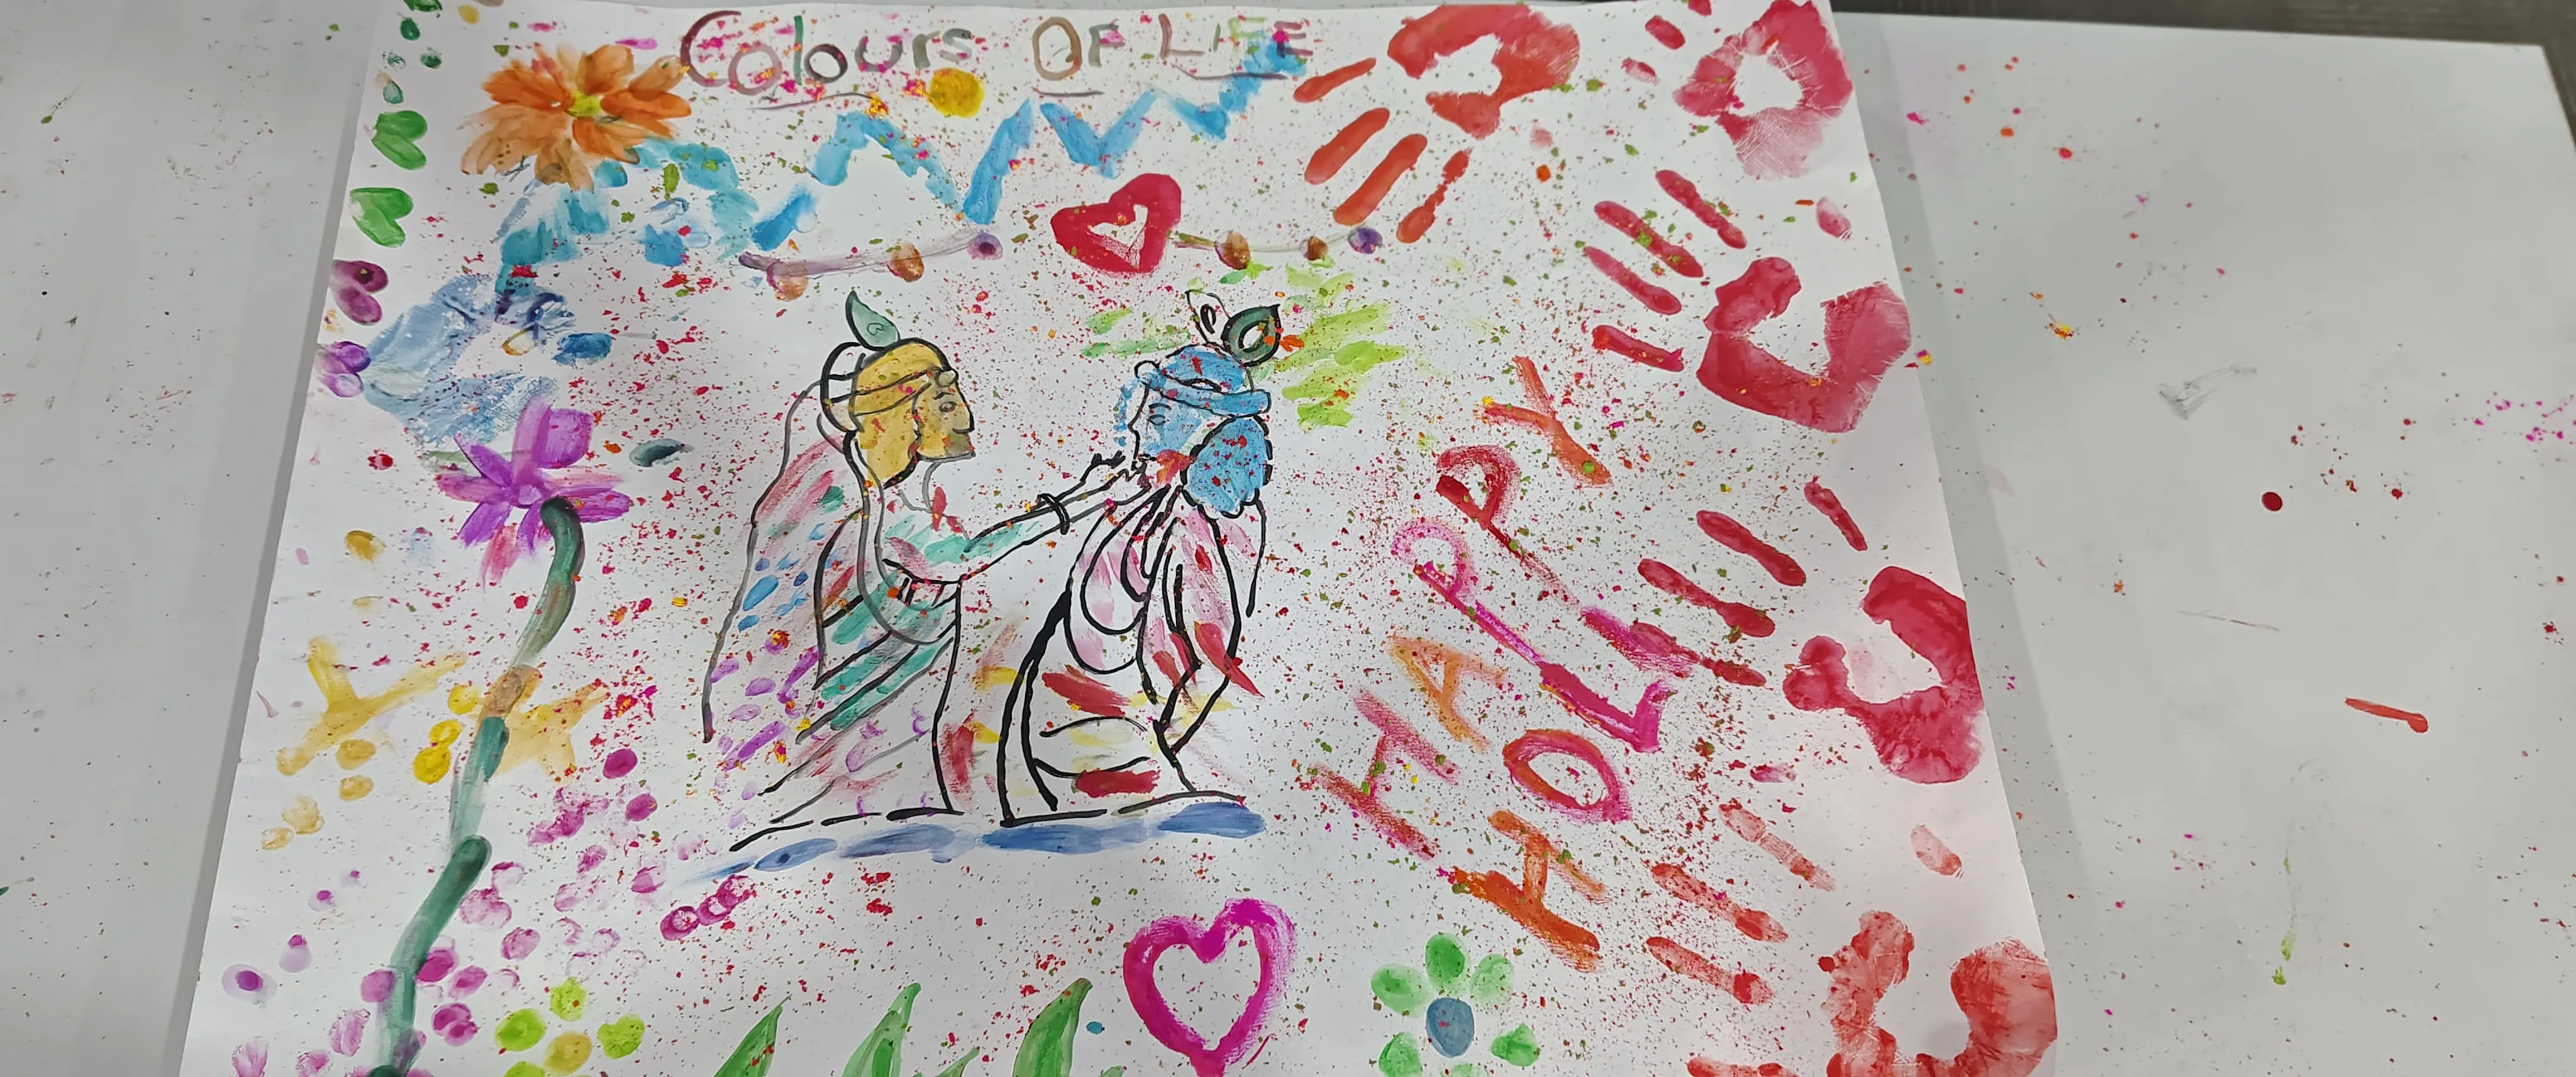 Colours OF LIFE
HAPPY
HOLI